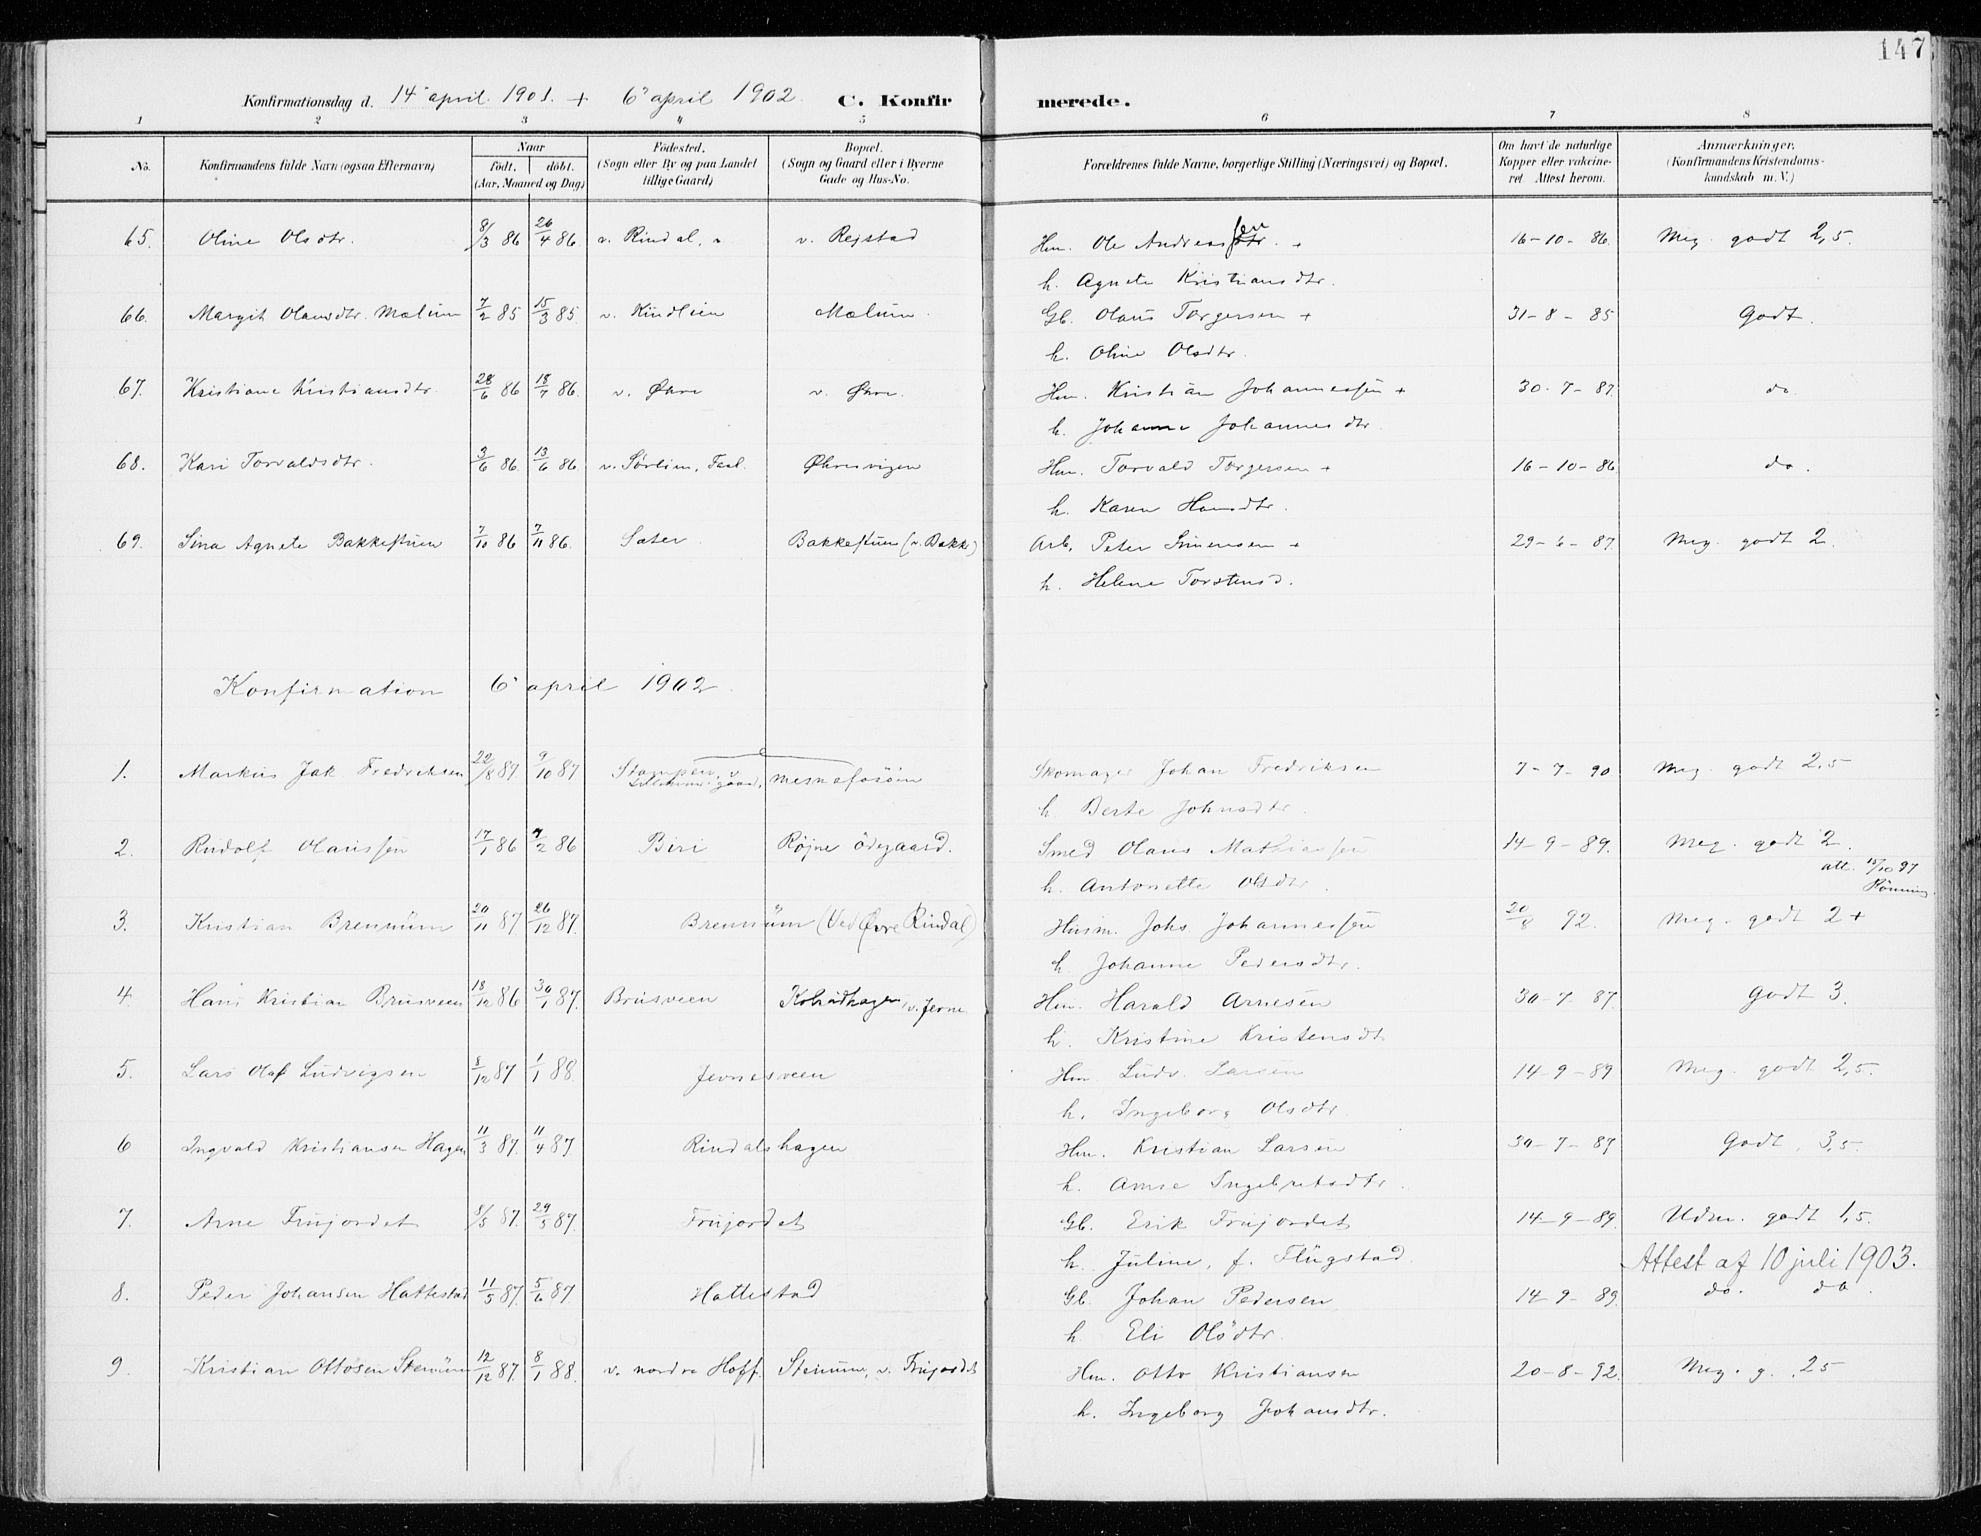 147
Konfirmationsdag d. 14' april 1901. + 6' april 1902. C. Konfirmerede.
1 2 3 4 5 6 7 8
No. Konfirmandens fulde Navn (ogsaa Efternavn) Naar født, døbt. (Aar, Maaned og Dag) Fødested. (Sogn eller By og paa Landet tillige Gaard) Bopæl. (Sogn og Gaard eller i Byerne Gade og Hus-No. Forældrenes fulde Navne, borgerlige Stilling (Næringsvei) og Bopæl. Om havt de naturlige Kopper eller vakcineret. Attest herom. Anmærkninger. (Konfirmandens Kristendomskundskab m. V.)
65. Oline Olsdtr. 8/3 86 26/4 86 v. Rindal, v. Rejstad Hm. Ole Andreassen + 16-10-86. Meg. godt 2,5.
h. Agnete Kristiansdtr.
66. Margit Olausdtr. Mælum 7/2 85 15/3 85. v. Kindlien Mælum. Gb. Olaus Torgersen + 31-8-85 Godt.
h. Oline Olsdtr.
67. Kristiane Kristiansdtr. 28/6 86 18/7 86. v. Øhre v. Øhre. Hm. Kristian Johannessen + 30-7-87. do.
h. Johanne Johannesdtr
68. Kari Torvaldsdtr. 3/6 86. 13/6 86 v. Sørlien, Faab. Øhresvigen Hm. Torvald Torgersen + 16-10-86 do.
h. Karen Hansdtr.
69. Sina Agnete Bakkestuen 7/10 86 7/11 86. Sater. Bakkestuen (v. Bakke) Arb. Peter Simensen + 29-6-87. Meg. godt 2.
h. Helene Torstensd.
Konfirmation 6' april 1902.
1. Markus Jak Fredriksen 22/8 87 9/10 87 Stampen, v. Lillehammer gaard, Mesnafosøen Skomager Johan Fredriksen 7-7-90 Meg. godt 2,5
h. Berte Johnsdtr.
2. Rudolf Olaussen 17/1 86 7/2 86 Biri Røjne ødegaard. Smed Olaus Mathiassen 14-9-89. Meg. godt 2.
h. Antonette Olsdtr. att. 15/10 97
Rønning.
3. Kristian Brennum 20/11 87 26/12 87. Brennum (Ved Øvre Rindal) Husm. Johs. Johannessen 20/8 92. Meg. godt 2 +
h. Johanne Pedersdtr.
4. Hans Kristian Brusveen 18/12 86 30/1 87. Brusveen v. Jevne Hm. Harald Arnesen 30-7-87. Godt 3.
h. Kristine Kristensdt
5. Lars Olaf Ludvigsen 8/12 87 1/1 88 Jevnesveen Hm. Ludv. Larsen 14-9-89 Meg. godt 2,5.
h. Ingeborg Olsdtr.
6 Ingvald Kristiansen Hagen 11/3 87. 11/4 87 Rindalshagen Hm. Kristian Larsen 30-7-87 Godt, 3,5
h. Anne Ingebretsdtr.
7. Arne Frujordet 8/5 87. 29/5 87. Frujordet Gb. Erik Frujordet 14-9-89. Udm. godt 1,5.
h. Juline, f. Flugstad Attest af 10 juli 1903.
8. Peder Johansen Hattestad 11/5 87. 5/6 87 Hattestad Gb. Johan Pedersen 14-9-89. do. do.
h. Eli Olsdtr.
9. Kristian Ottosen Stenum 12/12 87. 8/1 88. v. nordre Hoff. Stenum, v. Frujordet Hm. Otto Kristiansen 20-8-92. Meg. g. 2,5
h. Ingeborg Johansdtr.